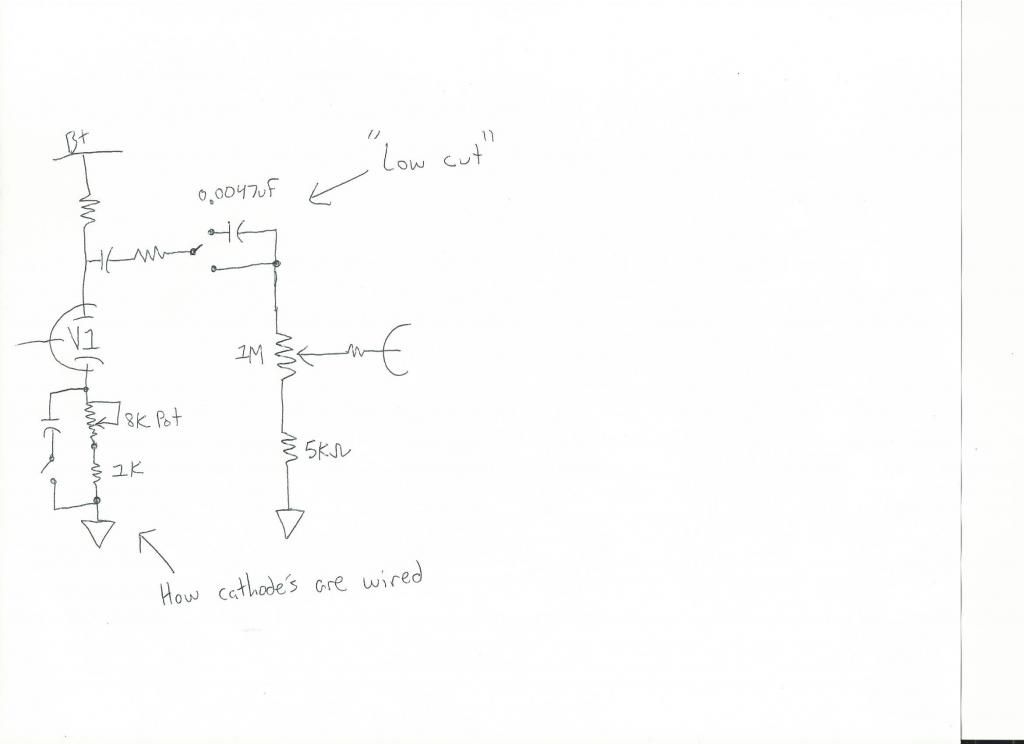 B+
"Low cut"
0.0047uF
V1
1M
8K Pot
5KΩ
1K
How cathode's are wired